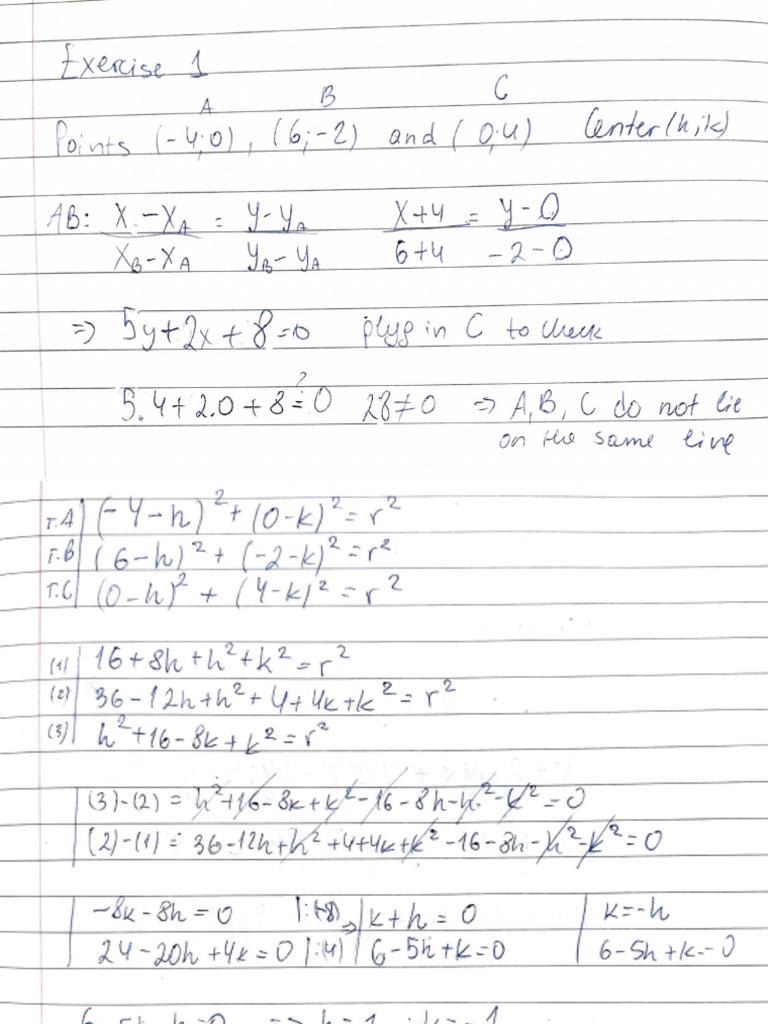 Exercise 1
A B C
Points (-4;0), (6;-2) and (0;4) Center(h;k)
AB: X-X_A / X_B-X_A = y-y_A / y_B-y_A X+4 / 6+4 = y-0 / -2-0
=> 5y+2x+8=0 plug in C to check
5.4+2.0+8 ?= 0 28≠0 => A, B, C do not lie
on the same line
т.A (-4-h)²+(0-k)²=r²
т.B (6-h)²+(-2-k)²=r²
т.C (0-h)²+(4-k)²=r²
(1) 16+8h+h²+k²=r²
(2) 36-12h+h²+4+4k+k²=r²
(3) h²+16-8k+k²=r²
(3)-(2) = h²+16-8k+k²-16-8h-h²-k²=0
(2)-(1) = 36-12h+h²+4+4k+k²-16-8h-h²-k²=0
-8k-8h=0 |:(-8) => k+h=0 k=-h
24-20h+4k=0 |:(4) 6-5h+k=0 6-5h+k=0
=> h=1 k=-1